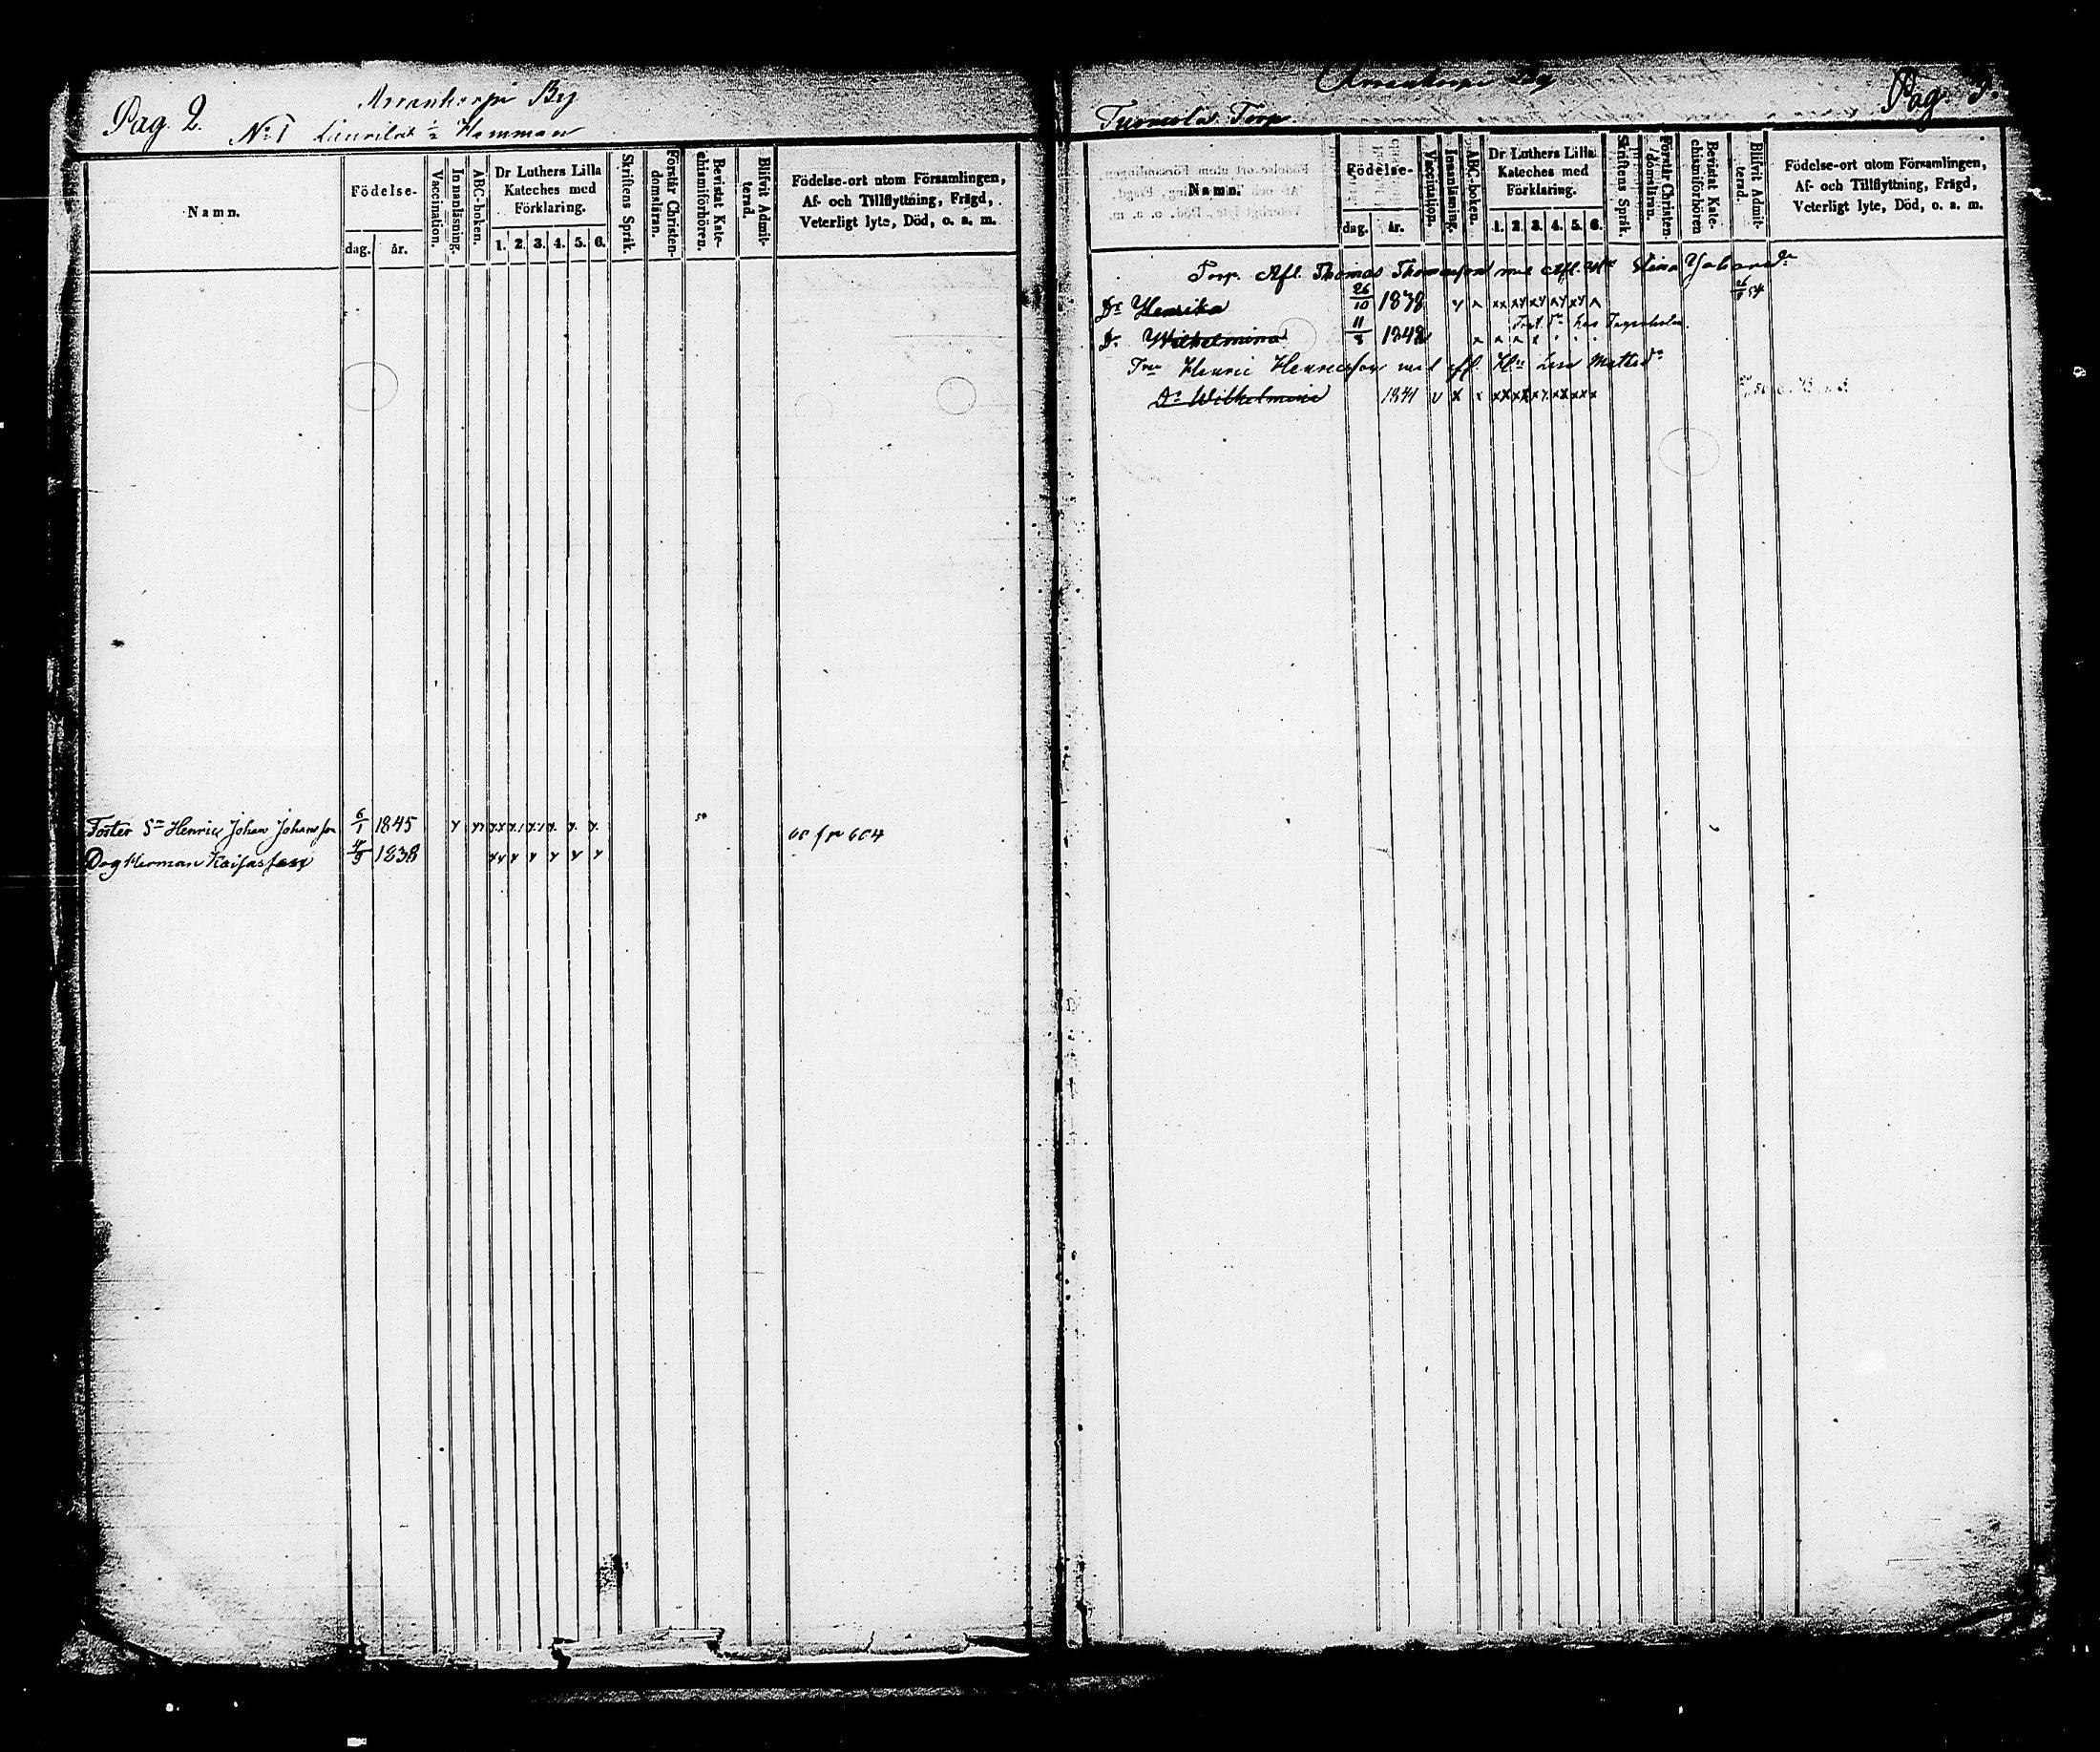 Pag. 2.
Arrankorpi By
No 1 Laurila 1/2 Hemman
Namn.
Födelse-
dag.
år.
Vaccination.
Innanläsning.
ABC-boken.
Dr Luthers Lilla
Kateches med
Förklaring.
1. 2. 3. 4. 5. 6.
Skriftens Språk.
Förstår Christen-
domsläran.
Bevistat Kate-
chismiförhören.
Blifvit Admit-
terad.
Födelse-ort utom Församlingen,
Af- och Tillflyttning, Frägd,
Veterligt lyte, Död, o. a. m.
Foster Sn Henric Johan Johansson 6/1 1845
Dog Herman 1838
Arrankorpi By
Pag. 3.
Torp
Namn.
Födelse-
dag.
år.
Vaccination.
Innanläsning.
ABC-boken.
Dr Luthers Lilla
Kateches med
Förklaring.
1. 2. 3. 4. 5. 6.
Skriftens Språk.
Förstår Christen-
domsläran.
Bevistat Kate-
chismiförhören
Blifvit Admit-
terad.
Födelse-ort utom Församlingen,
Af- och Tillflyttning, Frägd,
Veterligt lyte, Död, o. a. m.
Torp. Afl. Thomas Thomasson med Afl. Stina Johansdr
Dr Henrika 26/10 1838
Dr Wilhelmina 1848
Henric Henricsson med Lisa Matsdr
Dr Wilhelmina 1841